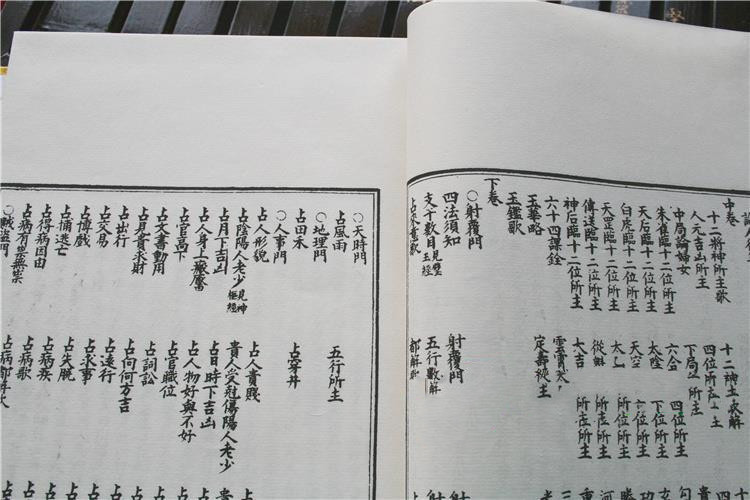 中卷
十二將神所主歌 十二神主災解
人元吉凶所主 四位所主
中局論婦女 下局所主
朱雀臨十二位所主 六合 四位所主
天后臨十二位所主 太陰 下位所主
白虎臨十二位所主 天空 六位所主
天罡臨十二位所主 所主
傳送臨十二位所主 從魁 所主
神后臨十二位所主 大吉 所主
六十四課詮
玉華略
玉鑑歌
下卷
○射覆門
四法須知 射覆門
支干數目見璧玉經 五行數解
占來意歌 都解歌
○天時門
占風雨 五行所主
○地理門
占田禾 占穿井
○人事門
占人形貌 占人貴賤
占陰陽人老少見神樞經 貴人受冠傷陽人老少
占月下吉凶 占日時下吉凶
占人身上瘢靨 占人物好與不好
占官高下 占官職位
占文書動用 占詞訟
占見貴求財 占向何方吉
占出行 占遠行
占交易 占求事
占博戲 占失脫
占捕逃亡 占病疾
占得病因由 占病歌
占病有祟無祟 占病都解歌
○賊盜門